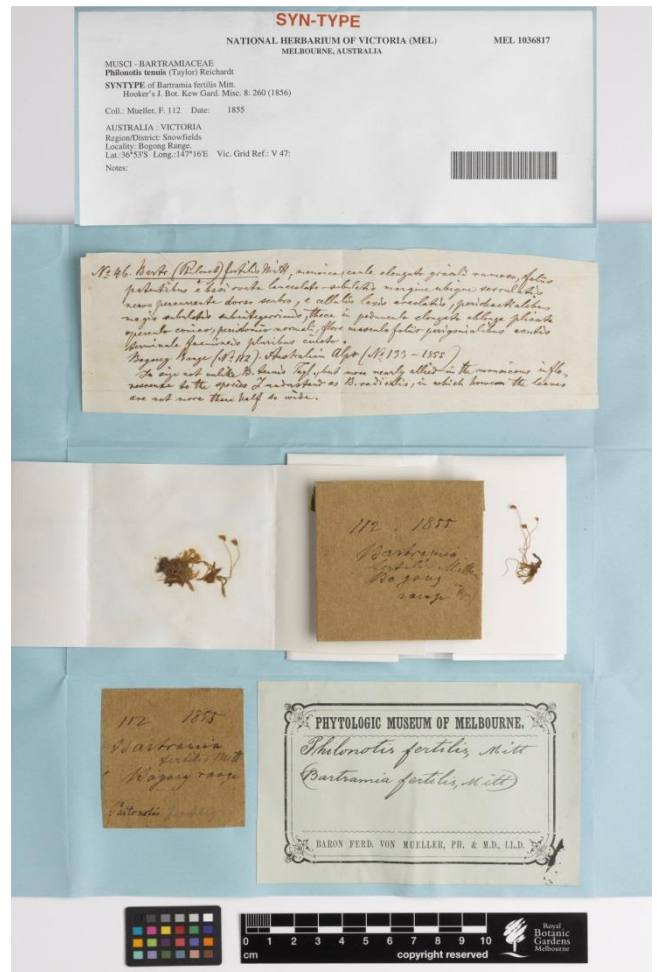 SYN-TYPE
NATIONAL HERBARIUM OF VICTORIA (MEL) MEL 1036817
MELBOURNE, AUSTRALIA
MUSCI - BARTRAMIACEAE
Philonotis tenuis (Taylor) Reichardt
SYNTYPE of Bartramia fertilis Mitt.
Hooker's J. Bot. Kew Gard. Misc. 8: 260 (1856)
Coll.: Mueller, F. 112 Date: 1855
AUSTRALIA : VICTORIA
Region/District: Snowfields
Locality: Bogong Range.
Lat.:36°53'S Long.:147°16'E Vic. Grid Ref.: V 47:
Notes:
No 46. Bartr. fertilis Mitt, monoica; caule elongato gracili ramoso, foliis
patentibus e basi ovata lanceolato-subulatis margine ubique serrulatis
nervo percurrente dorso scabro, e cellulis laxis areolatis, perichaetialibus
magis subulatis subintegerrimis, theca in pedunculo elongato oblonga plicata
operculo conico, peristomio normali, flore masculo foliis perigonialibus acutis
terminale pluribus
Bogong Range (No 112). Australian Alps (No 133 - 1855)
In size not unlike B. tenuis Tayl., but more nearly allied in the monoicous inflo-
rescence to the species I understand as B. radicalis, in which however the leaves
are not more than half so wide.
112 . 1855
Bartramia
fertilis Mitten
Bogong
range
112 1855
Bartramia
fertilis Mitt
Bogong range
PHYTOLOGIC MUSEUM OF MELBOURNE.
Philonotis fertilis, Mitt
(Bartramia fertilis, Mitt)
BARON FERD. VON MUELLER, PH. & M.D., LL.D.
0 1 2 3 4 5 6 7 8 9 10
cm copyright reserved
Royal
Botanic
Gardens
Melbourne